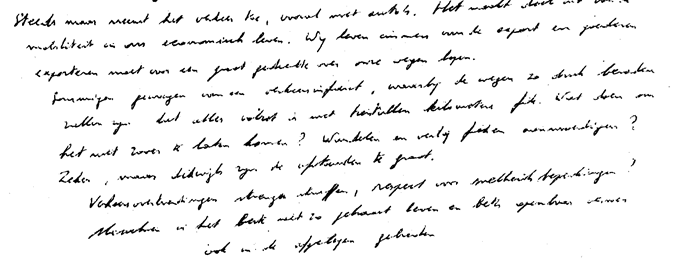 Steeds maar neemt het verkeer toe, vooral met auto's. Het maakt deel uit van
mobiliteit in ons economisch leven. Wij leven immers van de export en goederen
exporteren moet voor een groot gedeelte over onze wegen lopen.
Sommigen gewagen van een verkeersinfarct, waarbij de wegen zo druk bereden
zullen zijn dat alles vastzit met kilometers file. Wat doen om
het niet zover te laten komen? Wandelen en veilig fietsen aanmoedigen?
Zeker, maar dikwijls zijn de afstanden te groot.
Verkeersovertredingen strenger straffen, respect voor snelheidsbeperkingen?
Misschien is het best niet zo gehaast leven en beter openbaar vervoer
ook in de afgelegen gebieden